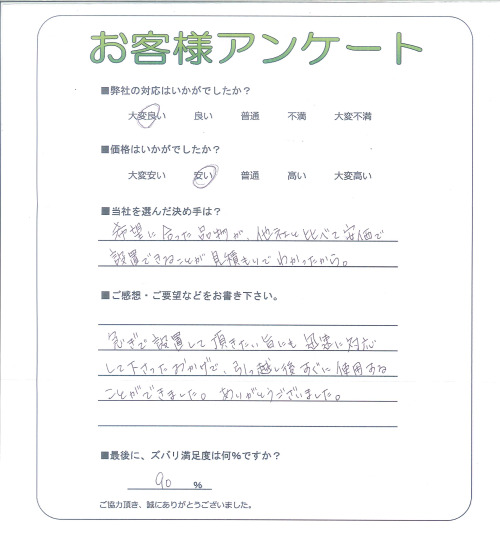 お客様アンケート
■弊社の対応はいかがでしたか？
大変良い 良い 普通 不満 大変不満
■価格はいかがでしたか？
大変安い 安い 普通 高い 大変高い
■当社を選んだ決め手は？
希望に合った品物が、他社と比べて安価で
設置できることが見積もりでわかったから。
■ご感想・ご要望などをお書き下さい。
急ぎで設置して頂きたい旨にも迅速に対応
して下さったおかげで、引っ越し後すぐに使用する
ことができました。ありがとうございました。
■最後に、ズバリ満足度は何%ですか？
90 %
ご協力頂き、誠にありがとうございました。